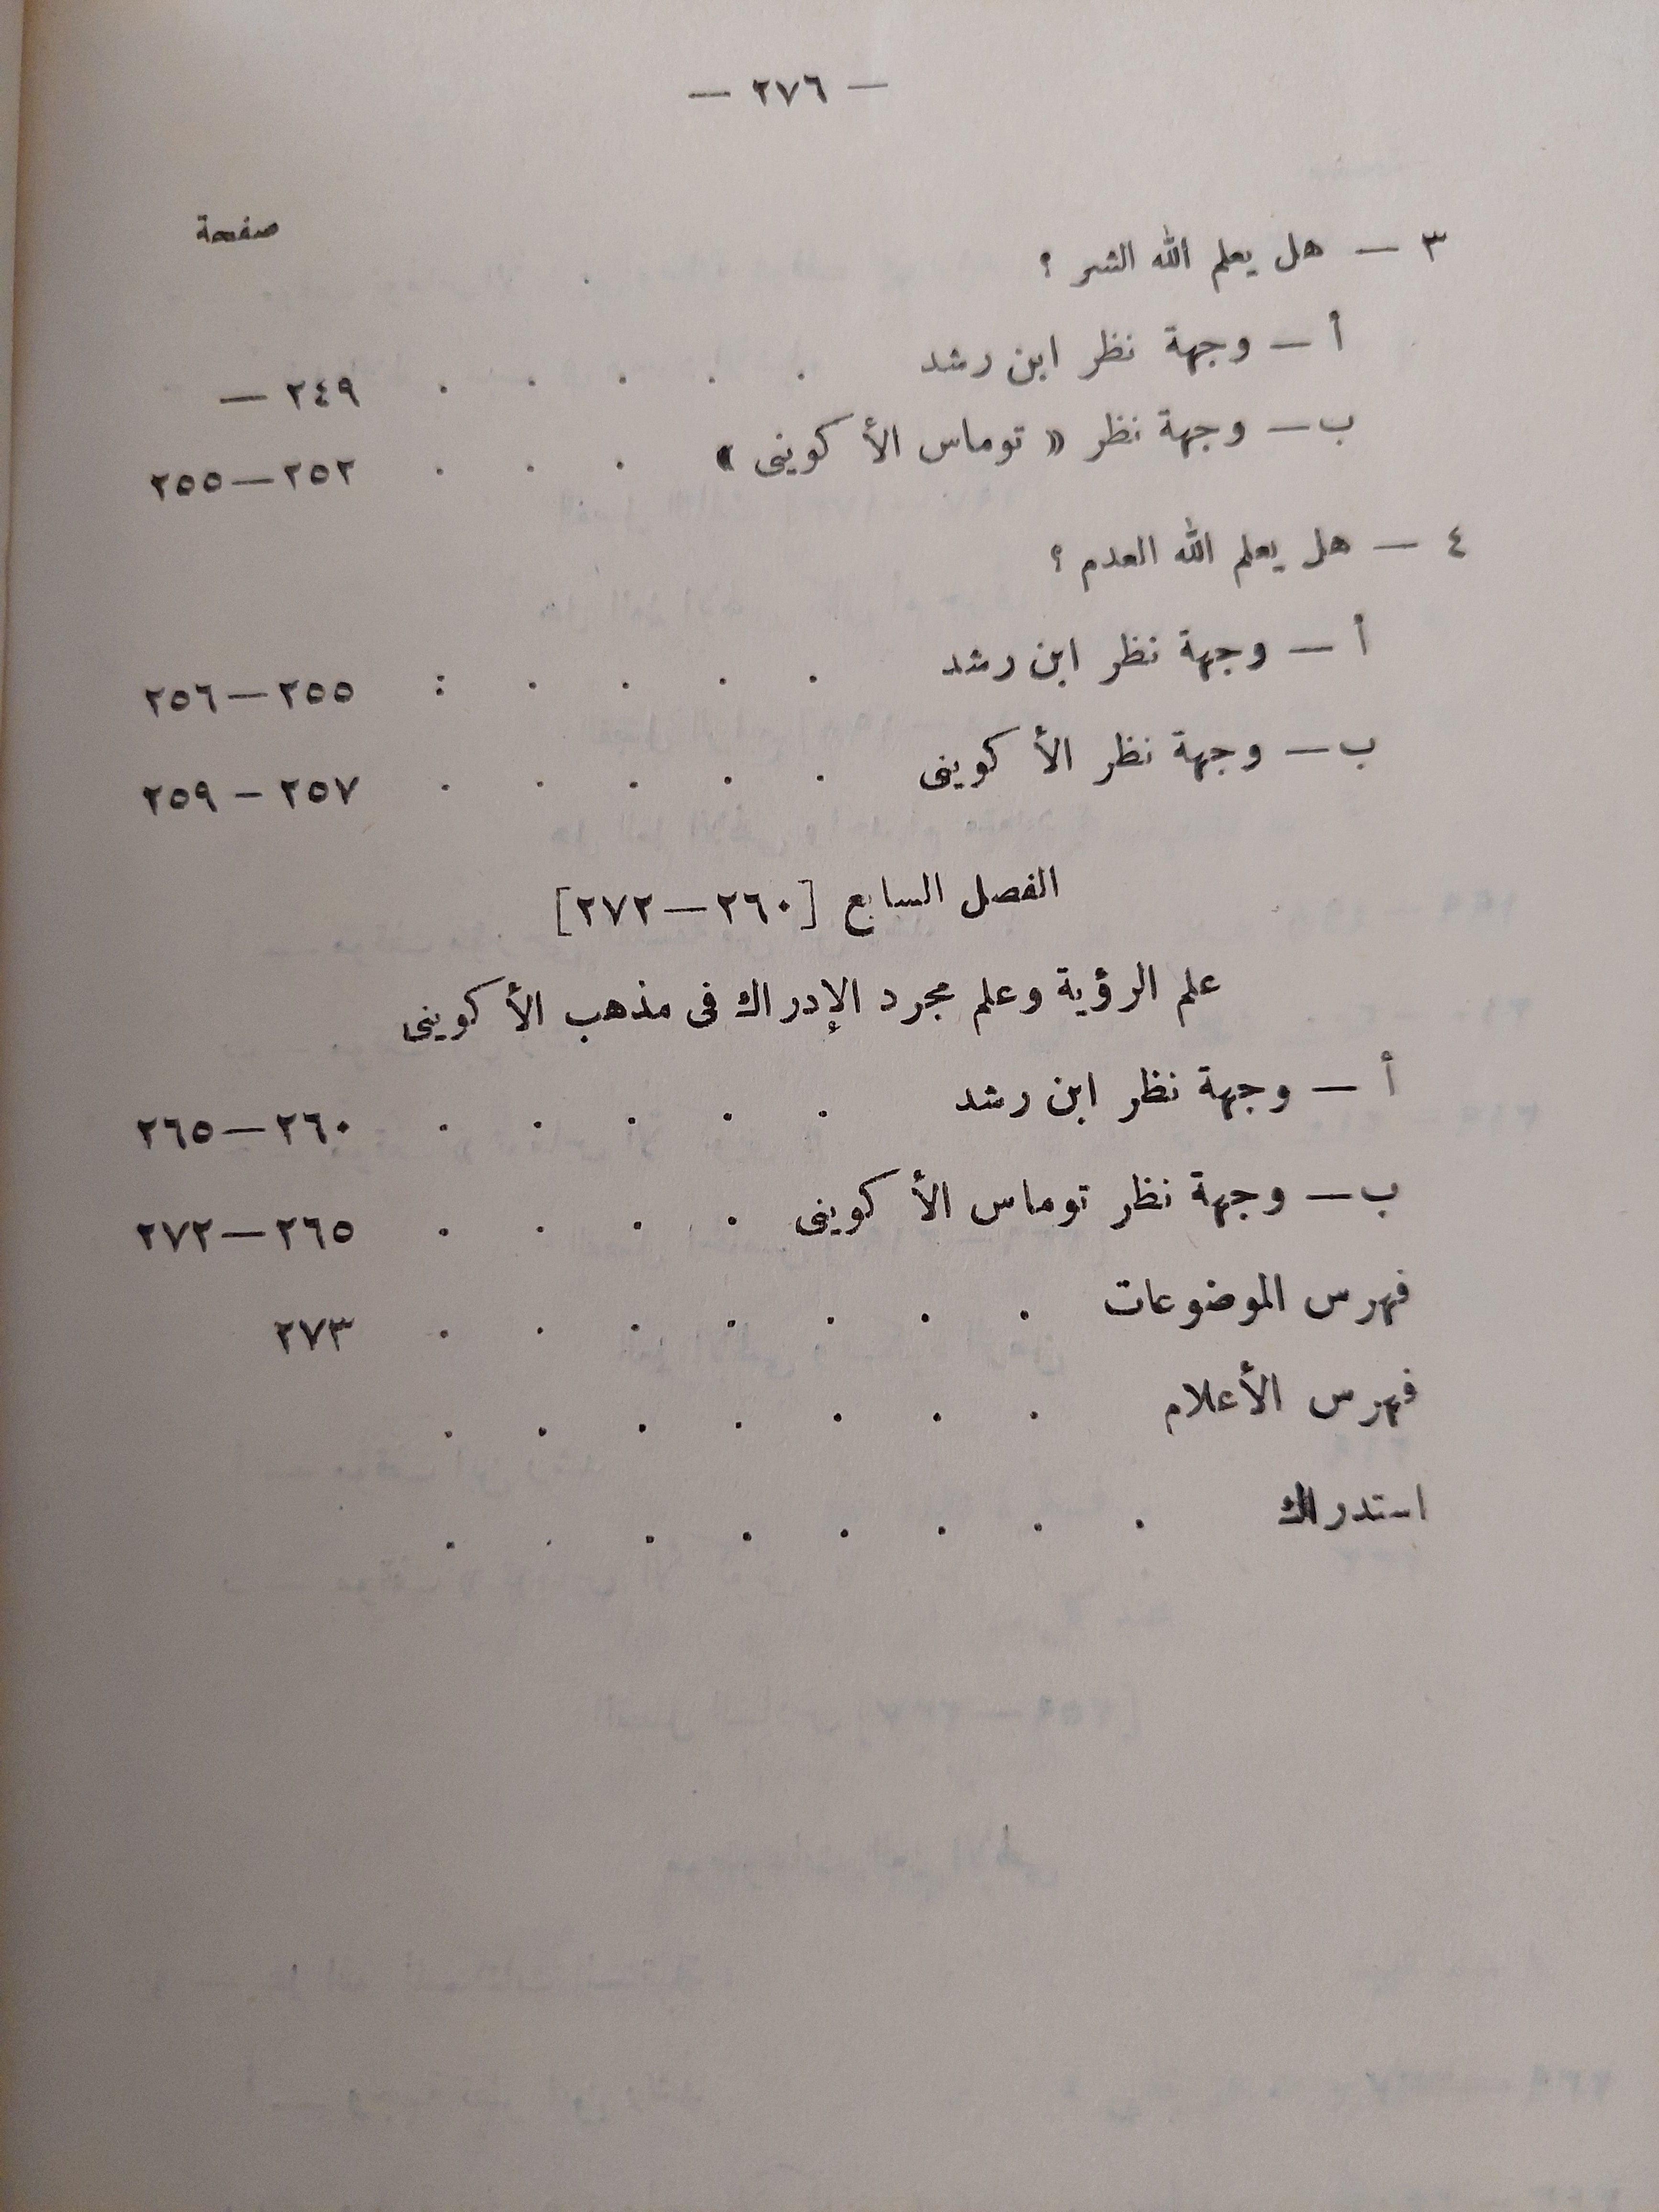 — ٢٧٦ —
صفحة
٣ — هل يعلم الله الشر ؟
أ — وجهة نظر ابن رشد . . . . . ٢٤٩ —
ب — وجهة نظر « توماس الأكوينى » . . . ٢٥٢—٢٥٥
٤ — هل يعلم الله العدم ؟
أ — وجهة نظر ابن رشد . . . . : ٢٥٥—٢٥٦
ب — وجهة نظر الأكوينى . . . . . ٢٥٧ — ٢٥٩
الفصل السابع [٢٦٠—٢٧٢]
علم الرؤية وعلم مجرد الإدراك فى مذهب الأكوينى
أ — وجهة نظر ابن رشد . . . . . ٢٦٠—٢٦٥
ب — وجهة نظر توماس الأكوينى . . . . ٢٦٥—٢٧٢
فهرس الموضوعات . . . . . . . ٢٧٣
فهرس الأعلام . . . . . . .
استدراك . . . . . . . .